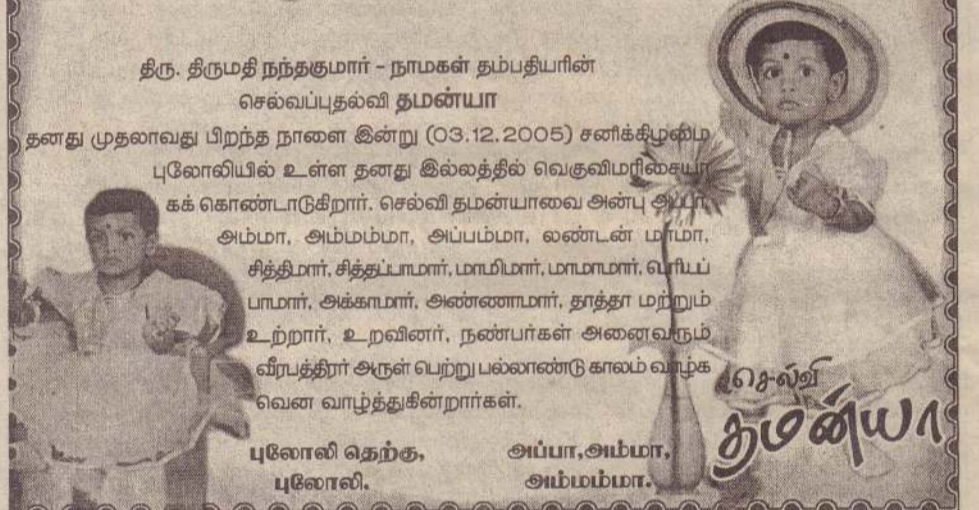 திரு. திருமதி நந்தகுமார் - நாமகள் தம்பதியரின்
செல்வப்புதல்வி தமன்யா
தனது முதலாவது பிறந்த நாளை இன்று (03.12.2005) சனிக்கிழமை
புலோலியில் உள்ள தனது இல்லத்தில் வெகுவிமரிசையா
கக் கொண்டாடுகிறார். செல்வி தமன்யாவை அன்பு அப்பா,
அம்மா, அம்மம்மா, அப்பம்மா, லண்டன் மாமா,
சித்திமார், சித்தப்பாமார், மாமிமார், மாமாமார், பெரியப்
பாமார், அக்காமார், அண்ணாமார், தாத்தா மற்றும்
உற்றார், உறவினர், நண்பர்கள் அனைவரும்
வீரபத்திரர் அருள் பெற்று பல்லாண்டு காலம் வாழ்க
வென வாழ்த்துகின்றார்கள்.
செல்வி
தமன்யா
புலோலி தெற்கு,
புலோலி.
அப்பா,அம்மா,
அம்மம்மா.